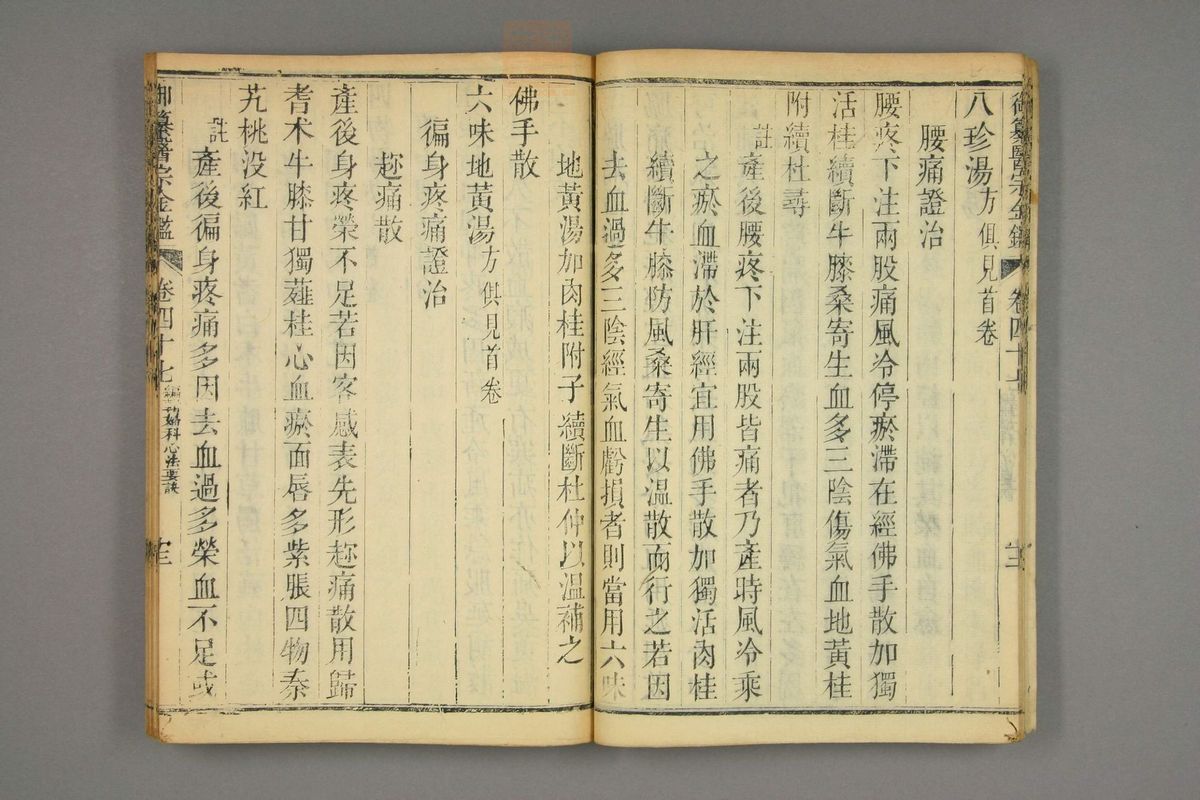 御纂醫宗金鑑 卷四十七
八珍湯方俱見首卷
腰痛證治
腰疼下注兩股痛風冷停瘀滯在經佛手散加獨
活桂續斷牛膝桑寄生血多三陰傷氣血地黃桂
附續杜尋
註產後腰疼下注兩股皆痛者乃產時風冷乘
之瘀血滯於肝經宜用佛手散加獨活肉桂
續斷牛膝防風桑寄生以溫散而行之若因
去血過多三陰經氣血虧損者則當用六味
地黃湯加肉桂附子續斷杜仲以溫補之
佛手散
六味地黃湯方俱見首卷
徧身疼痛證治
趂痛散
產後身疼榮不足若因客感表先形趂痛散用歸
耆术牛膝甘獨薤桂心血瘀面唇多紫脹四物秦
艽桃没紅
註產後徧身疼痛多因去血過多榮血不足或
御纂醫宗金鑑 卷四十七 編輯婦科心法要訣